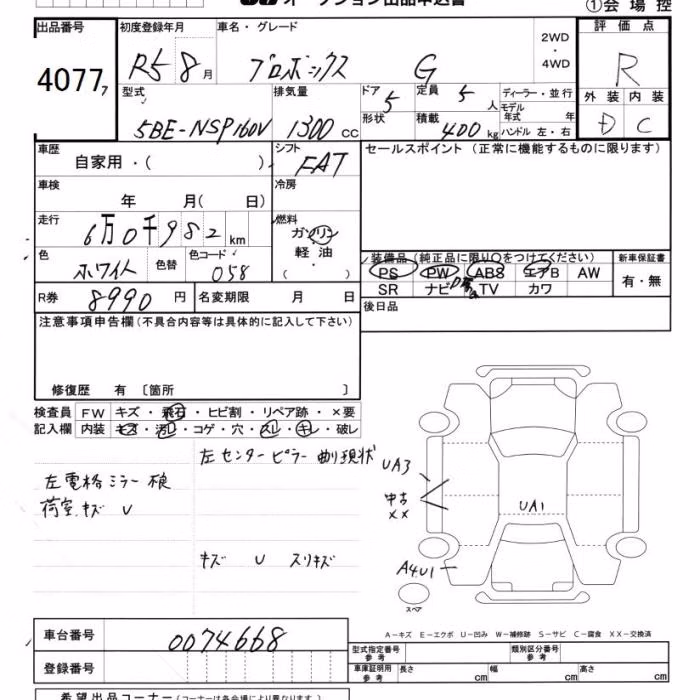 オークション出品申込書
①会場控
出品番号 初度登録年月 車名・グレード 2WD・4WD 評価点
4077 R5 8月 プロボックス G R
型式 排気量 ドア 5 定員 5人 ディーラー・並行 外装 内装
5BE-NSP160V 1300cc 形状 積載 400kg モデル年式 年 D C
ハンドル 左・右
車歴 自家用・( ) シフト FAT セールスポイント(正常に機能するものに限ります)
車検 年 月( 日) 冷房
走行 6万0千982km 燃料 ガソリン
色 ホワイト 色替 色コード 058 軽油
( ・ )
装備品(純正品に限り○をつけてください) 新車保証書
PS PW ABS エアB AW 有・無
SR ナビ TV カワ
R券 8990円 名変期限 月 日 後日品
注意事項申告欄(不具合内容等は具体的に記入して下さい)
修復歴 有 〔箇所 〕
検査員 FW キズ・飛石・ヒビ割・リペア跡・×要
記入欄 内装 キズ・汚レ・コゲ・穴・スレ・キレ・破レ
左センターピラー曲り現状
左電格ミラー 
荷室キズ U
キズ U スリキズ
UA3
中古
XX
UA1
A4U1
スペア
A－キズ E－エクボ U－凹み W－補修跡 S－サビ C－腐食 XX－交換済
車台番号 0074668 型式指定番号 参考 類別区分番号 参考
登録番号 車庫証明用 参考 長さ cm 幅 cm 高さ cm
希望出品コーナー(コーナーは各会場により異なります。)